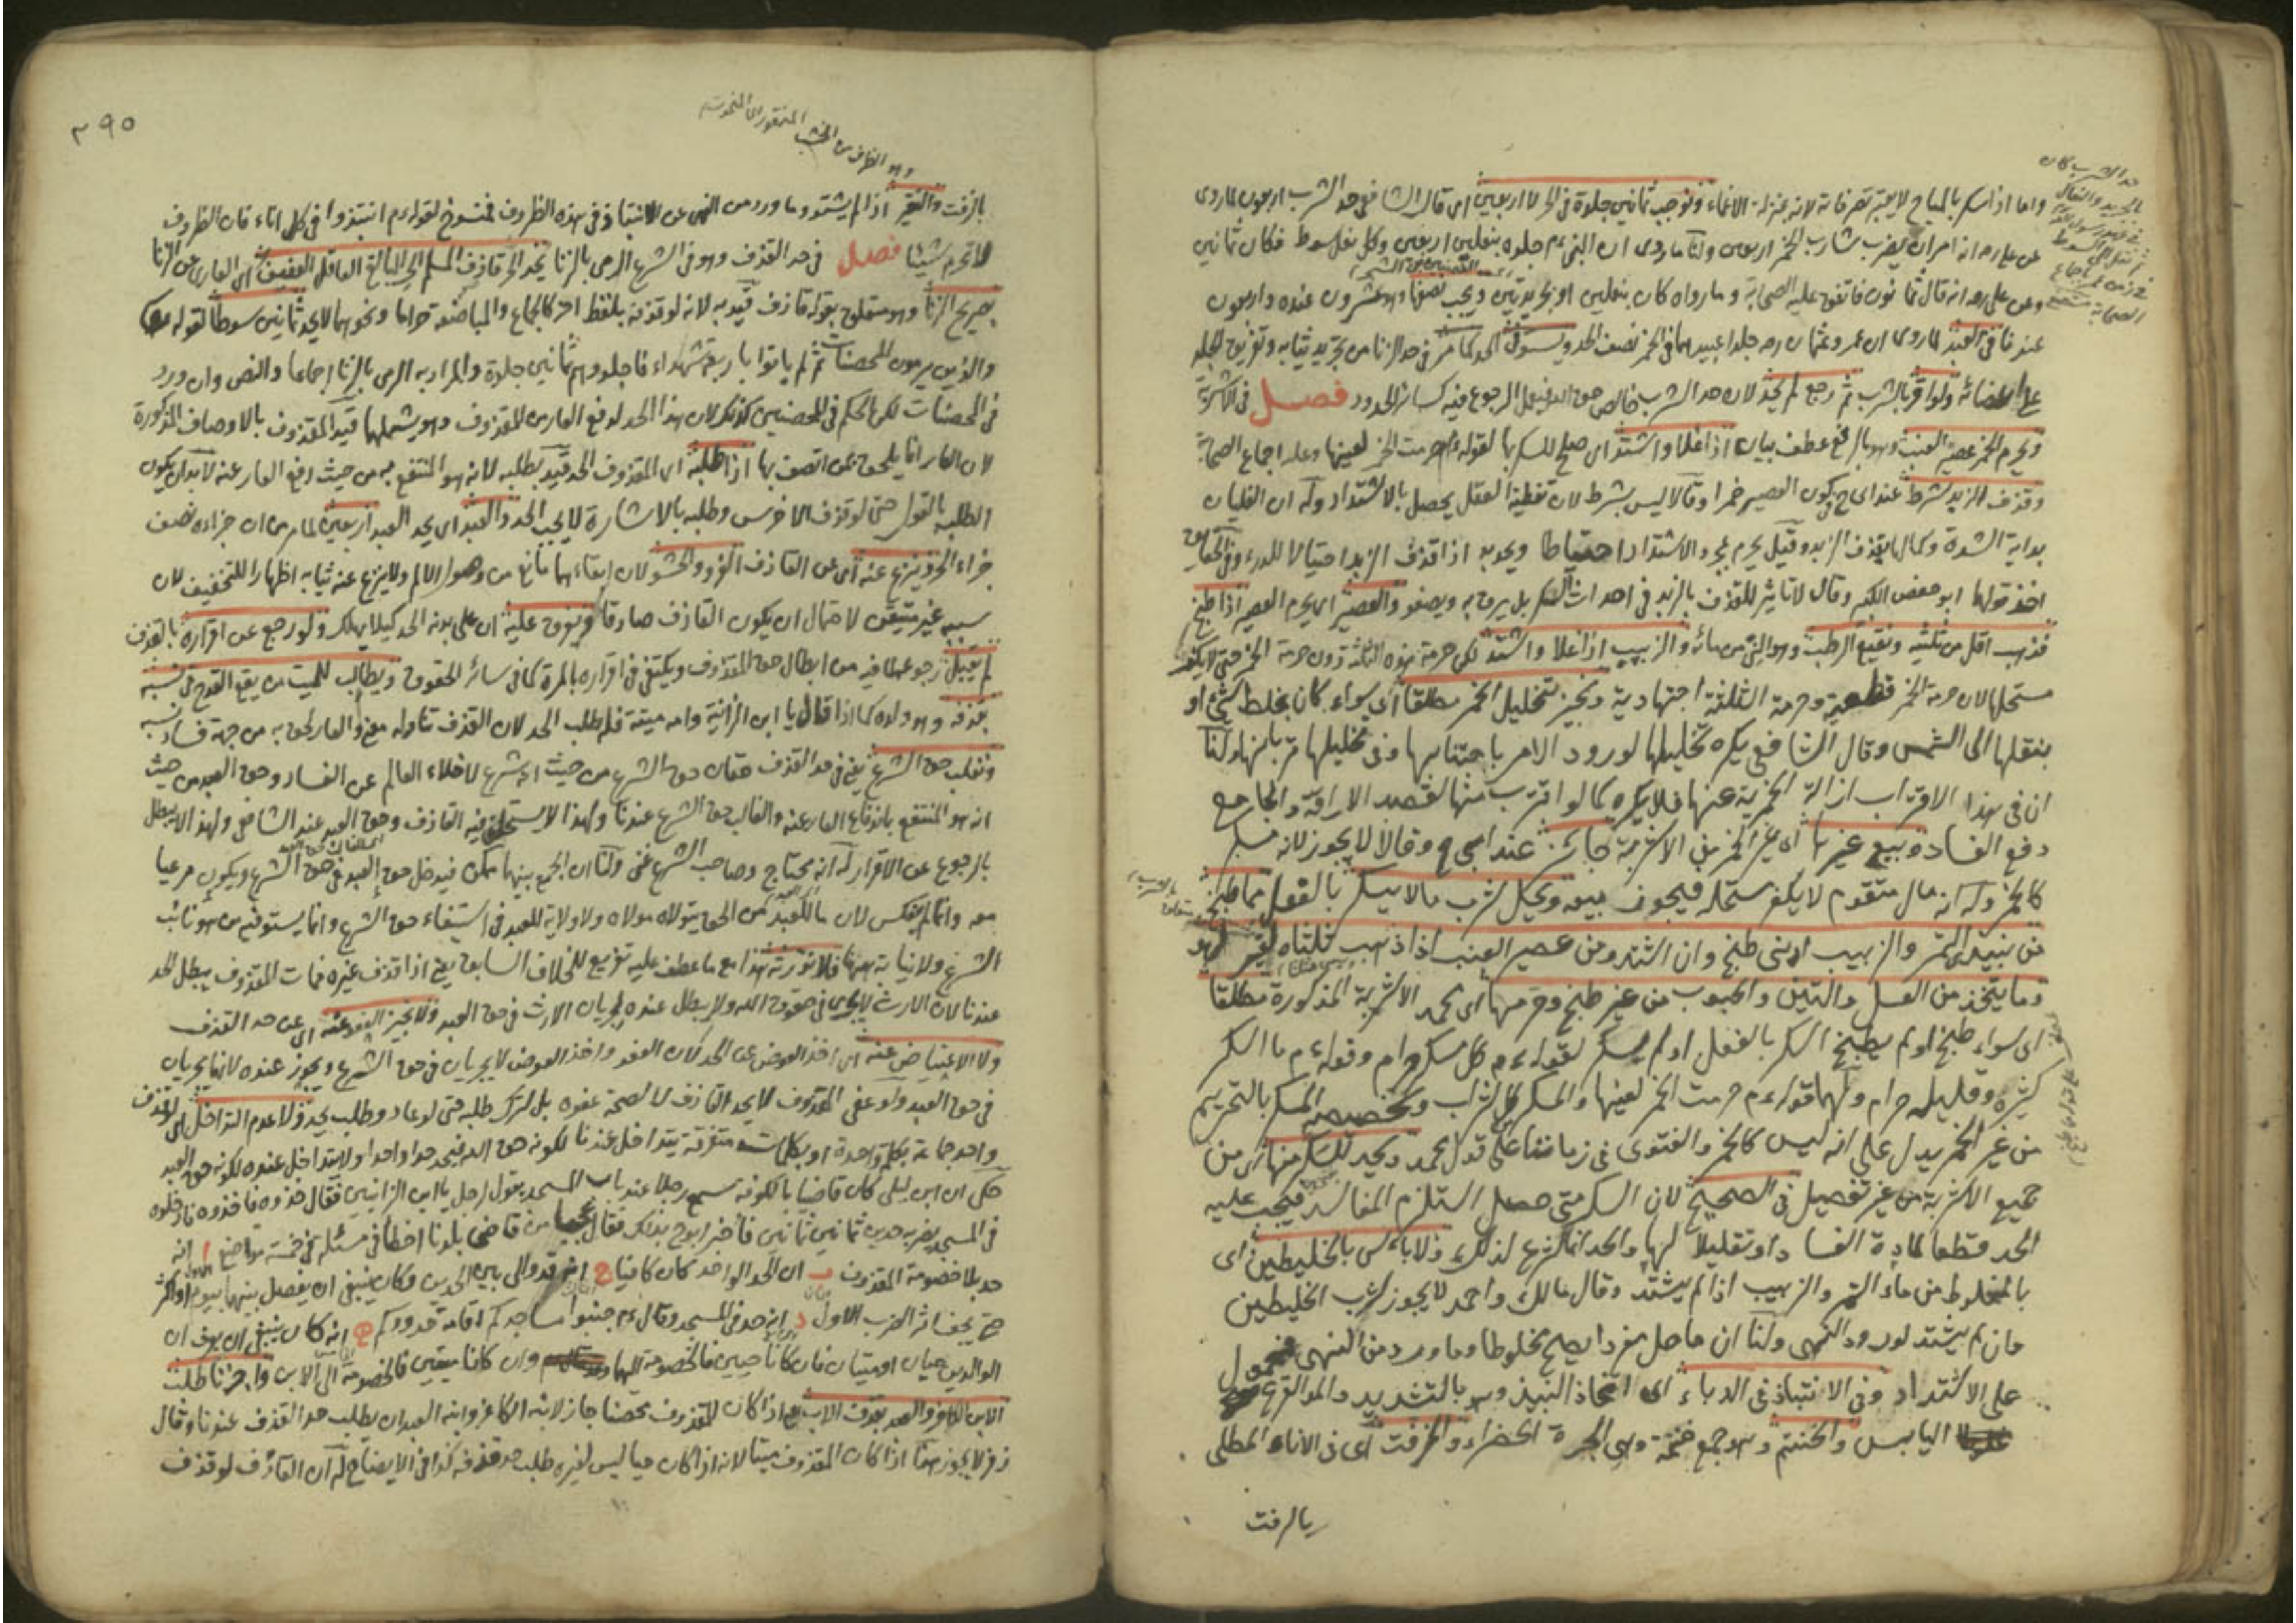 واما اذا سكر بالمباح لا يعتبر تصرفاته لانه بمنزلة الاغماء ونوجب ثمانين جلدة في الحر لا اربعين اى قال الشافعي حد الشرب اربعون لما روى
عن على رضه انه امر ان يضرب شارب الخمر اربعين ولنا ما روى ان النبي ءم جلده بنعلين اربعين وكل نعل سوط فكان ثمانين
وعن على رضه انه قال ثمانون فاتفق عليه الصحابة وما رواه كان بنعلين او بجريدتين ويجب نصفها وهو عشرون عنده واربعون
عندنا في العبد لما روى ان عمر وعثمان رضه جلدا عبيدهما في الخمر نصف الحد ويستوفى الحد كما مر في حد الزنا من تجريد ثيابه وتفريق الجلد
على اعضائه ولو اقر بالشرب ثم رجع لم يحد لان حد الشرب خالص حق الله فيقبل الرجوع فيه كسائر الحدود فصل في الاشربة
ويحرم الخمر عصير العنب وهو بالرفع عطف بيان اذا غلا واشتد اى صلح للسكر بها لقوله ءم حرمت الخمر لعينها وعليه اجماع الصحابة
وقذف الزبد شرط عند ابى ح في كون العصير خمرا وقالا ليس بشرط لان تغطية العقل يحصل بالاشتداد وله ان الغليان
بداية الشدة وكمالها بقذف الزبد وقيل يحرم بمجرد الاشتداد احتياطا ويحد به اذا قذف الزبد احتيالا للدرء وفي الحقايق
اخذ قولهما ابو حفص الكبير وقال لا تاثير للقذف بالزبد في احداث السكر بل يرق به ويصفو والعصير اى يحرم العصير اذا طبخ
فذهب اقل من ثلثيه ونقيع الرطب وهو الني من مائه والزبيب اذا غلا واشتد لكن حرمة هذه الثلثة دون حرمة الخمر حتى لا يكفر
مستحلها لان حرمة الخمر قطعية وحرمة الثلثة اجتهادية ونجيز تخليل الخمر مطلقا اى سواء كان بخلط شئ او
بنقلها الى الشمس وقال الشافعي يكره تخليلها لورود الامر باجتنابها وفي تخليلها قربانها ولنا
ان في هذا الاقتراب ازالة الخمرية عنها فلا يكره كما لو اقترب منها لقصد الاراقة والجامع
دفع الفساد وبيع غيرها اى غير الخمر من الاشربة جائز عند ابى ح وقالا لا يجوز لانه مسكر
كالخمر وله انه مال متقوم لا يكفر مستحله فيجوز بيعه ويحل شرب ما لا يسكر بالفعل مما طبخ
من نبيذ التمر والزبيب ادنى طبخ وان اشتد ومن عصير العنب اذا ذهب ثلثاه لغير لهو
وما يتخذ من العسل والتين والحبوب من غير طبخ وحرمها اى محمد الاشربة المذكورة مطلقا
اى سواء طبخ او لم يطبخ اسكر بالفعل او لم يسكر لقوله ءم كل مسكر حرام وقوله ءم ما اسكر
كثيره وقليله حرام ولهما قوله ءم حرمت الخمر لعينها والسكر من كل شراب وتخصيصه السكر بالتحريم
من غير الخمر يدل على انه ليس كالخمر والفتوى في زماننا على قول محمد ويحد للسكر منها اى من
جميع الاشربة من غير تفصيل في الصحيح لان السكر متى حصل استلزم المفاسد فيجب عليه
الحد قطعا لمادة الفساد او تقليلا لها والحد انما شرع لذلك ولا باس بالخليطين اى
بالمخلوط من ماء التمر والزبيب اذا لم يشتد وقال مالك واحمد لا يجوز شرب الخليطين
وان لم يشتد لورود النهى ولنا ان ما حل مفردا يصح مخلوطا وما ورد من النهى فمحمول
على الاشتداد وفي الانتباذ في الدباء اى اتخاذ النبيذ وهو بالتشديد والمد القرع
اليابس والحنتم وهو جمع حنتمة وهي الجرة الخضراء والمزفت اى في الاناء المطلى
بالزفت
٣٩٠
وهو الظرف من الخشب المنقور اى المنحوت
بالزفت والنقير اذا لم يشتد وما ورد من النهى عن الانتباذ في هذه الظروف فمنسوخ لقوله ءم انتبذوا في كل اناء فان الظروف
لا تحرم شيئا فصل في حد القذف وهو في الشرع الرمى بالزنا يحد الحر قاذف المسلم الحر البالغ العاقل العفيف اى العارى عن الزنا
بصريح الزنا وهو متعلق بقوله قاذف قيد به لانه لو قذفه بلفظ اخر كالجماع والمباضعة حراما ونحوهما لا يحد ثمانين سوطا لقوله تعالى
والذين يرمون المحصنات ثم لم ياتوا باربعة شهداء فاجلدوهم ثمانين جلدة والمراد به الرمى بالزنا اجماعا والنص وان ورد
في المحصنات لكن الحكم في المحصنين كذلك لان هذا الحد لدفع العار من المقذوف وهو يشملهما قيد المقذوف بالاوصاف المذكورة
لان العار انما يلحق بمن اتصف بها اذا طلبه اى المقذوف الحد قيد بطلبه لانه هو المنتفع به من حيث دفع العار عنه لابد ان يكون
الطلب بالقول حتى لو قذف الاخرس وطلبه بالاشارة لا يجب الحد والعبد اى يحد العبد اربعين لما مر من ان جزاءه نصف
جزاء الحر وينزع عنه اى عن القاذف الفرو والحشو لان ابقاءهما مانع من وصول الالم ولا ينزع عنه ثيابه اظهارا للتخفيف لان
سببه غير متيقن لاحتمال ان يكون القاذف صادقا ويفرق عليه اى على بدنه الحد كيلا يهلك ولو رجع عن اقراره بالقذف
لم يقبل رجوعه لما فيه من ابطال حق المقذوف ويكتفى في اقراره بالمرة كما في سائر الحقوق ويطالب للميت من يقع القدح في نسبه
بقذفه وهو ولده كما اذا قال يا ابن الزانية وامه ميتة فله طلب الحد لان القذف تناوله معنى والعار لحق به من جهة فساد نسبه
ونغلب حق الشرع يعنى في حد القذف حقان حق الشرع من حيث انه شرع لاخلاء العالم عن الفساد وحق العبد من حيث
انه هو المنتفع باندفاع العار عنه والغالب حق الشرع عندنا ولهذا لا يستحلف فيه القاذف وحق العبد عند الشافعي ولهذا لا يبطل
بالرجوع عن الاقرار له انه محتاج وصاحب الشرع غنى ولنا ان الجمع بينهما ممكن فيدخل حق العبد في حق الشرع ويكون مرعيا
معه وانما لم ينعكس لان ما للعبد من الحق يتولاه مولاه ولا ولاية للعبد في استيفاء حق الشرع وانما يستوفيه من هو نائب
الشرع ولا نيابة ههنا فلا نورثه هذا مع ما عطف عليه تفريع للخلاف السابق يعنى اذا قذف غيره فمات المقذوف يبطل الحد
عندنا لان الارث لا يجرى في حقوق الله ولا يبطل عنده لجريان الارث في حق العبد ولا نجيز العفو عنه اى عن حد القذف
ولا الاعتياض عنه اى اخذ العوض عن الحد لان العفو واخذ العوض لا يجريان في حق الشرع ويجوز عنده لانهما يجريان
في حق العبد ولو عفى المقذوف لا يحد القاذف لا لصحة عفوه بل لترك طلبه حتى لو عاد وطلب يحد ولا عدم التداخل اى لو قذف
واحد جماعة بكلمة واحدة او بكلمات متفرقة يتداخل عندنا لكونه حق الله فيحد حدا واحدا ولا يتداخل عنده لكونه حق العبد
حكى ان ابن ليلى كان قاضيا بالكوفة سمع رجلا عند باب المسجد يقول لرجل يا ابن الزانيين فقال خذوه فاخذوه فادخلوه
في المسجد يضربه حدين ثمانين ثمانين فاخبر ابو ح بذلك فقال يا عجبا من قاضى بلدنا اخطأ في مسئلة في خمسة مواضع ا انه
حد بلا خصومة المقذوف ب ان الحد الواحد كان كافيا ج انه قد والى بين الحدين وكان ينبغي ان يفصل بينهما بيوم او اكثر
حتى يخف اثر الضرب الاول د انه حد في المسجد وقال ءم جنبوا مساجدكم اقامة حدودكم ه انه كان ينبغي ان يعرف ان
الوالدين حيان او ميتان فان كانا حيين فالخصومة اليهما وان كانا ميتين فالخصومة الى الابن واجزنا طلب
الابن الكافر والعبد بقذف الاب يعنى اذا كان المقذوف محصنا جاز لابنه الكافر وابنه العبد ان يطلب حد القذف عندنا وقال
زفر لا يجوز هذا اذا كان المقذوف ميتا لانه اذا كان حيا ليس لغيره طلب حد قذفه كذا في الايضاح له ان القاذف لو قذف